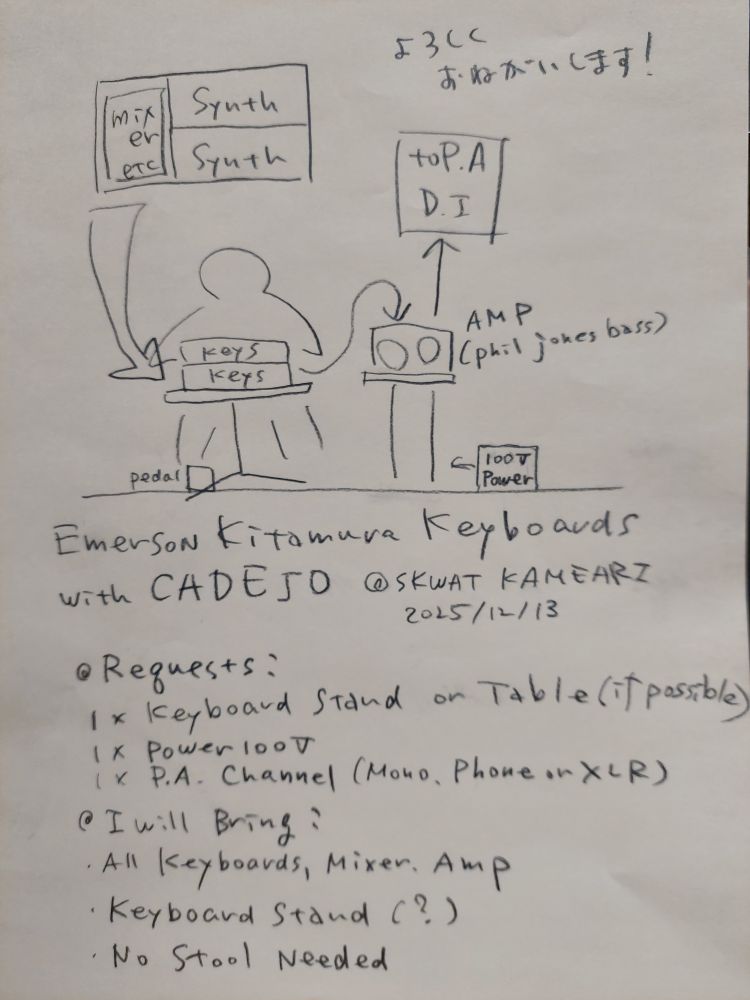 よろしく
おねがいします!
mix
er
etc
Synth
Synth
to P.A
D.I
AMP
(phil jones bass)
keys
keys
pedal
100V
Power
Emerson Kitamura Keyboards
with CADEJO @SKWAT KAMEARI
2025/12/13
@ Requests:
1x Keyboard Stand or Table (if possible)
1x Power 100V
1x P.A. Channel (Mono. Phone or XLR)
@ I will Bring:
・All Keyboards, Mixer. Amp
・Keyboard Stand (?)
・No Stool Needed